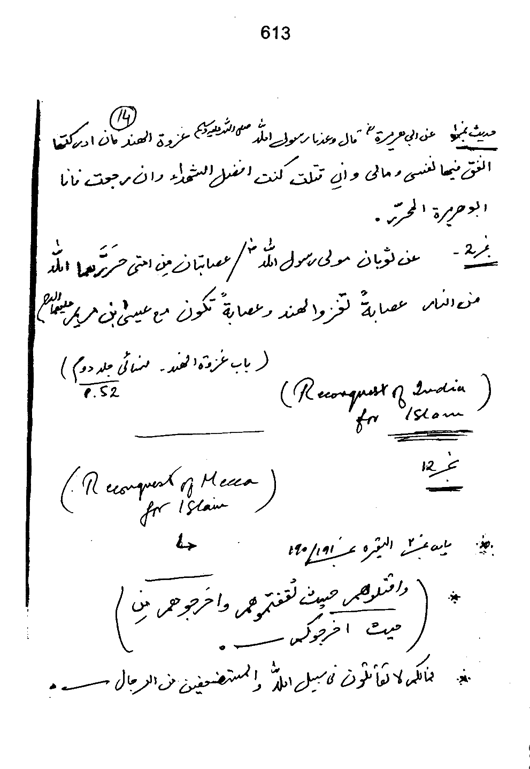 613
14
حدیث نمبر1 عن ابی هریرة رض قال وعدنا رسول اللہ صلی اللہ علیہ وسلم غزوة الهند فان ادرکتها
انفق فیها نفسی و مالی و انی قتلت کنت افضل الشهداء و ان رجعت فانا
ابو هریرة المحرّر۔
نمبر2۔ عن ثوبان مولی رسول اللہ / عصابتان مِن امتی حَرَّرَهما اللہ
من النار عصابةٌ تغزوا الهند و عصابةٌ تکون مع عیسیٰ ابن مریم علیهما السلام
(باب غزوة الهند۔ نسائی جلد دوم)
P.52
(Reconquest of India
for Islam)
نمبر 12
(Reconquest of Mecca
for Islam)
پارہ نمبر ۲ البقرہ نمبر ۱۹۰/۱۹۱
(واقتلوهم حیث ثقفتموهم واخرجوهم مِن
حیث اخرجوکم ۔)
* مالکم لا تقاتلون فی سبیل اللہ والمستضعفین من الرجال ۔